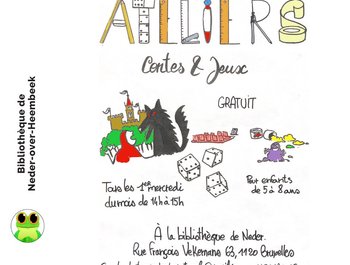 Bibliothèque de
Neder-over-Heembeek
ATELIERS
Contes & Jeux
GRATUIT
Tous les 1er mercredi
du mois de 14h à 15h
Pour enfants
de 5 à 8 ans
À la bibliothèque de Neder.
Rue François Vekemans 63, 1120 Bruxelles